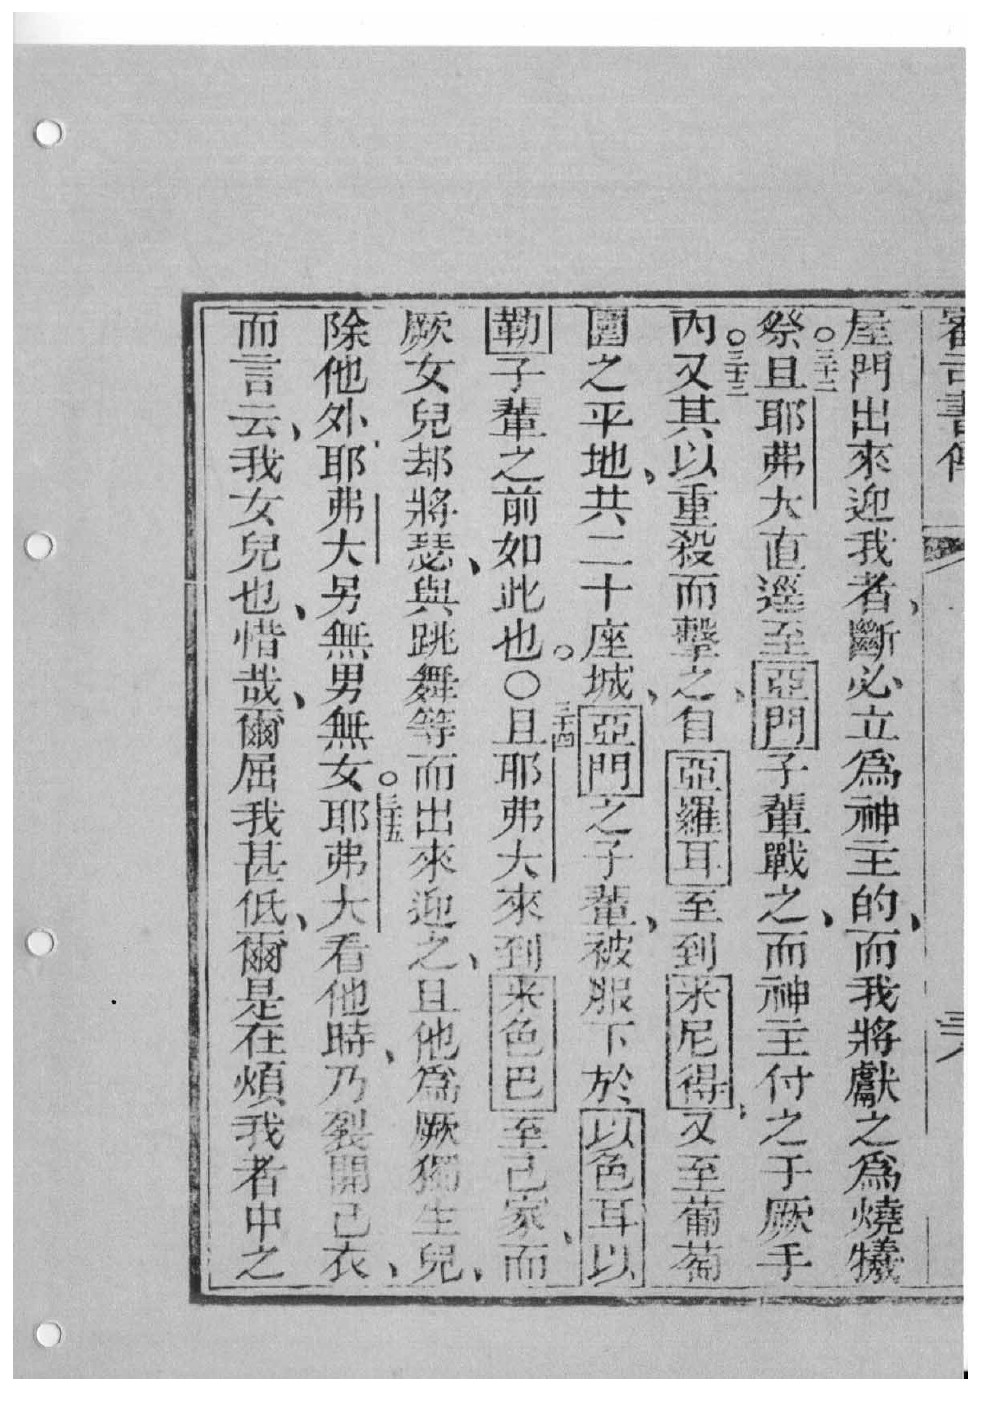 審司書傳
三八
屋門出來迎我者、斷必立爲神主的、而我將獻之爲燒犧
祭。三十二且耶弗大直逕至亞門子輩戰之、而神主付之于厥手
內。三十三又其以重殺而擊之、自亞羅耳至到米尼得、又至葡萄
園之平地、共二十座城、亞門之子輩、被服下於以色耳以
勒子輩之前如此也。〇三十四且耶弗大來到米色巴至己家、而
厥女兒却將瑟、與跳舞等而出來迎之、且他爲厥獨生兒、
除他外、耶弗大另無男無女。三十五耶弗大看他時、乃裂開己衣、
而言云、我女兒也、惜哉、爾屈我甚低、爾是在煩我者中之